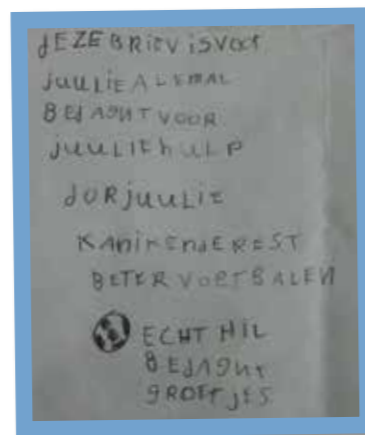 dEZE BRIEV iSVOOr
juuLiE ALEMAL
BEdAGHT VOOR
juuLIE hULP
dORjuuLiE
KANiKENdEREST
BETER VOETBALEN
ECHT HIL
BEdAGHt
gROETjES